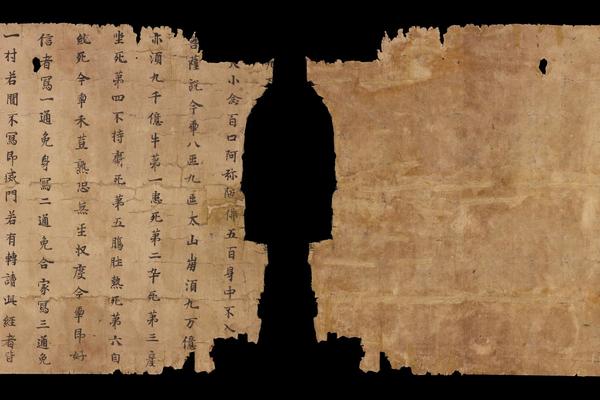 小念百口阿弥陁佛五百身中不入
菩薩説今年八亟九亟太山崩須九万億
亦須九千億牛第一患死第二卒死第三
坐死第四不持齋死第五腸肚熱死第六自
死今年禾荳熟恐無收度今年即好
信者寫一通免身寫二通免合家寫三通免
一村若聞不寫即滅門若有轉讀此經者皆